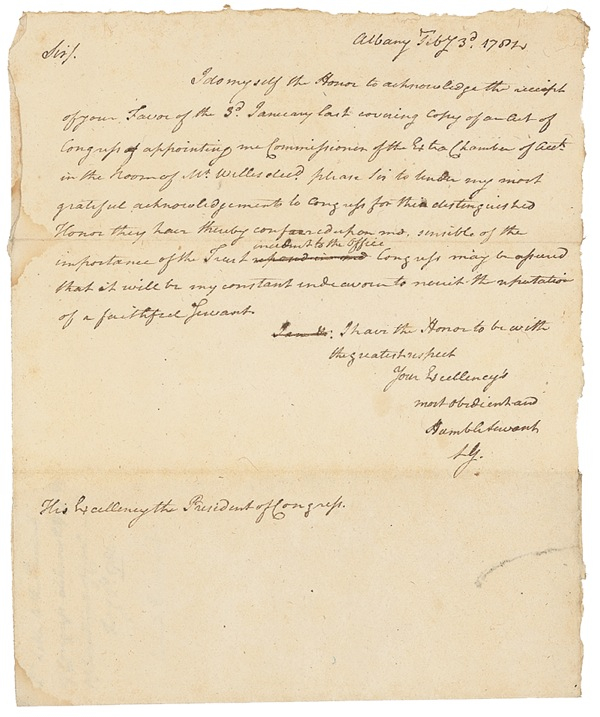 Albany Feby 3d. 1782
Sir/.
I do myself the Honor to acknowledge the receipt
of your Favor of the 3d January last covering Copy of an Act of
Congress appointing me Commissioner of the Extra Chamber of Acct.
in the Room of Mr. Willes decd. please Sir to render my most
grateful acknowledgements to Congress for the distinguished
Honor they have thereby conferred upon me, sensible of the
incident to the office
importance of the Trust reposed in me Congress may be assured
that it will be my constant endeavour to merit the reputation
of a faithful Servant.
I am &c: I have the Honor to be with
the greatest respect
Your Excellency's
most obedient and
Humble Servant
His Excellency the President of Congress.